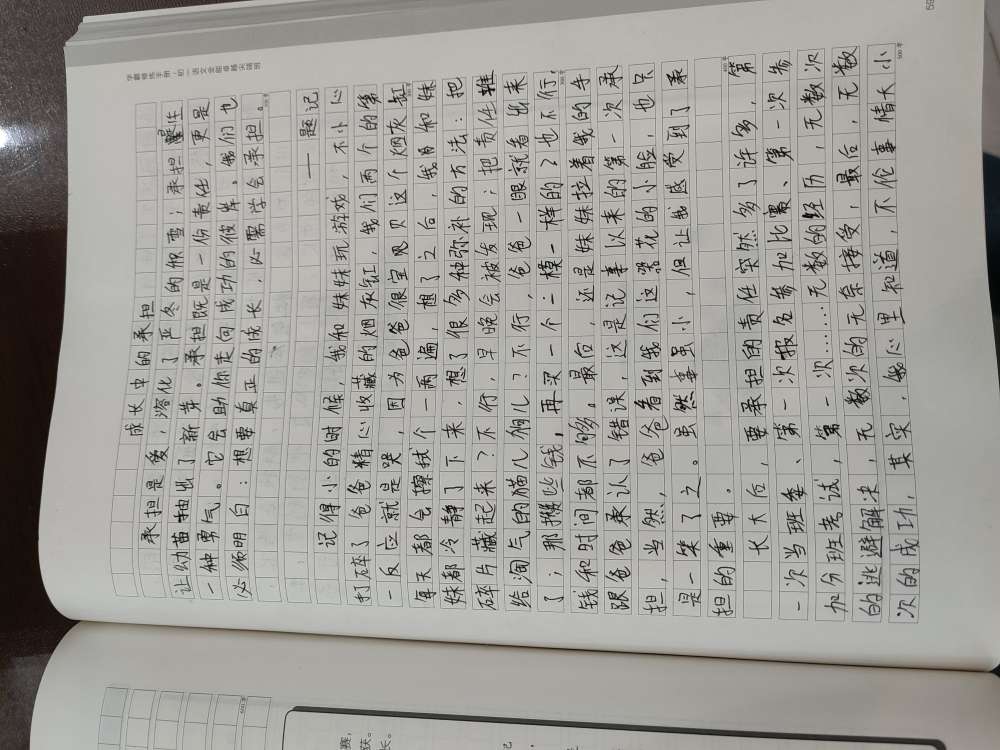 学霸修炼手册·初一语文全能卓越尖端班
成长中的承担
承担是爱，溶化了严冬的依雪；承担是
让幼苗抽出了新芽。承担既是一份责任，更是
一种勇气。它会助你走向成功的彼岸。我们也
必须明白：想要真正的成长，必需学会承担。
——题记
记得小的时候，我和妹妹玩游戏，不小心
打碎了爸爸精心收藏的烟灰缸，我们两个的第
一反应就是哭，因为爸爸很宝贝这个烟灰缸
每天都会擦拭个一两遍，想了之后，我和妹
妹都冷静了下来，想了很多种弥补的方法：把
碎片藏起来？不行，早晚会被发现；把责任推
给淘气的猫儿狗儿？不行，爸爸一眼就看出来
了；那攒些钱，再买一个一模一样的？也不行，
钱和时间都不够。最后，还是妹妹拉着我的手
跟爸爸承认了错误，这是记事以来的第一次承
担，当然，爸爸看到我们这哭花的小脸，也只
是一笑了之。虽然事虽小，但让我感受到了承
担的重要。
长大后，要承担的责任突然多了许多，第
一次当班委、第一次报名参加比赛、第一次参
加分班考试，第一次……无数的经历，无数次
的逃避解决，无数次的无奈接受，最后，无数
次的成功，其实，我心里知道，不伦事情大小
100字
200字
300字
400字
500字
59
600字